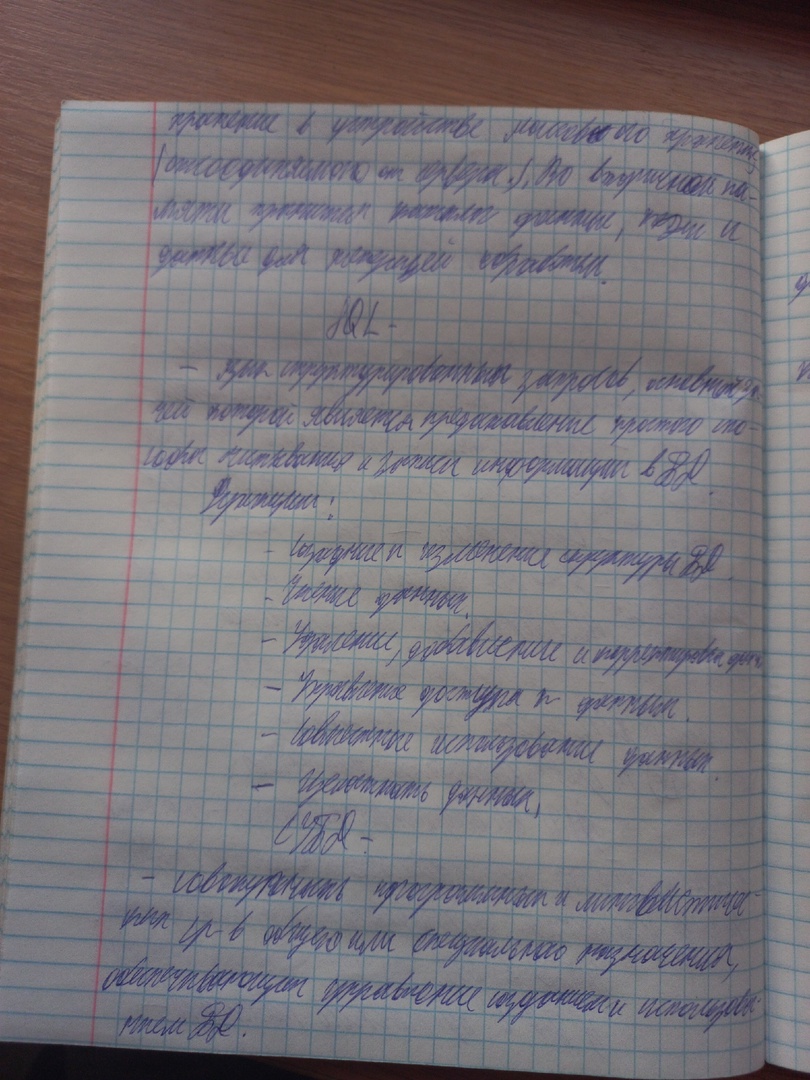 хранение в устройстве массового хранения,
(отсоединяемого от сервера.). Во вторичной па-
мяти хранятся каталоги страницы, коды и
данные для текущей обработки.
SQL -
- язык структурированных запросов, основной за-
чей которой является предоставление простого спо-
собы считывания и записи информации в БД.
Функции:
- Создание и изменение структуры БД
- Чтение данных.
- Удаление, добавление и корректировка данн.
- Управление доступа к данным.
- Совместное использование данных.
- Целостность данных.
СУБД -
- Совокупность программных и лингвистичес-
ких ср-в общего или специального назначения,
обеспечивающих управление созданием и использова-
нием БД.